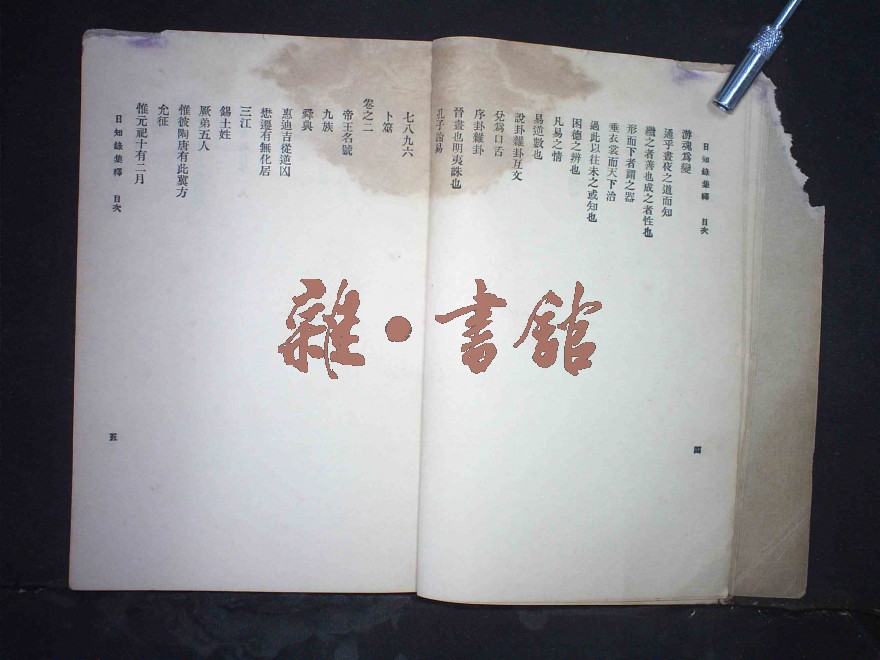 日知錄集釋 目次
四
游魂爲變
通乎晝夜之道而知
繼之者善也成之者性也
形而下者謂之器
垂衣裳而天下治
過此以往未之或知也
困德之辨也
凡易之情
易逆數也
說卦雜卦互文
兌爲口舌
序卦雜卦
晉晝也明夷誅也
孔子論易
七八九六
卜筮
卷之二
帝王名號
九族
舜典
惠迪吉從逆凶
懋遷有無化居
三江
錫土姓
厥弟五人
惟彼陶唐有此冀方
允征
惟元祀十有二月
日知錄集釋 目次
五
雜·書館